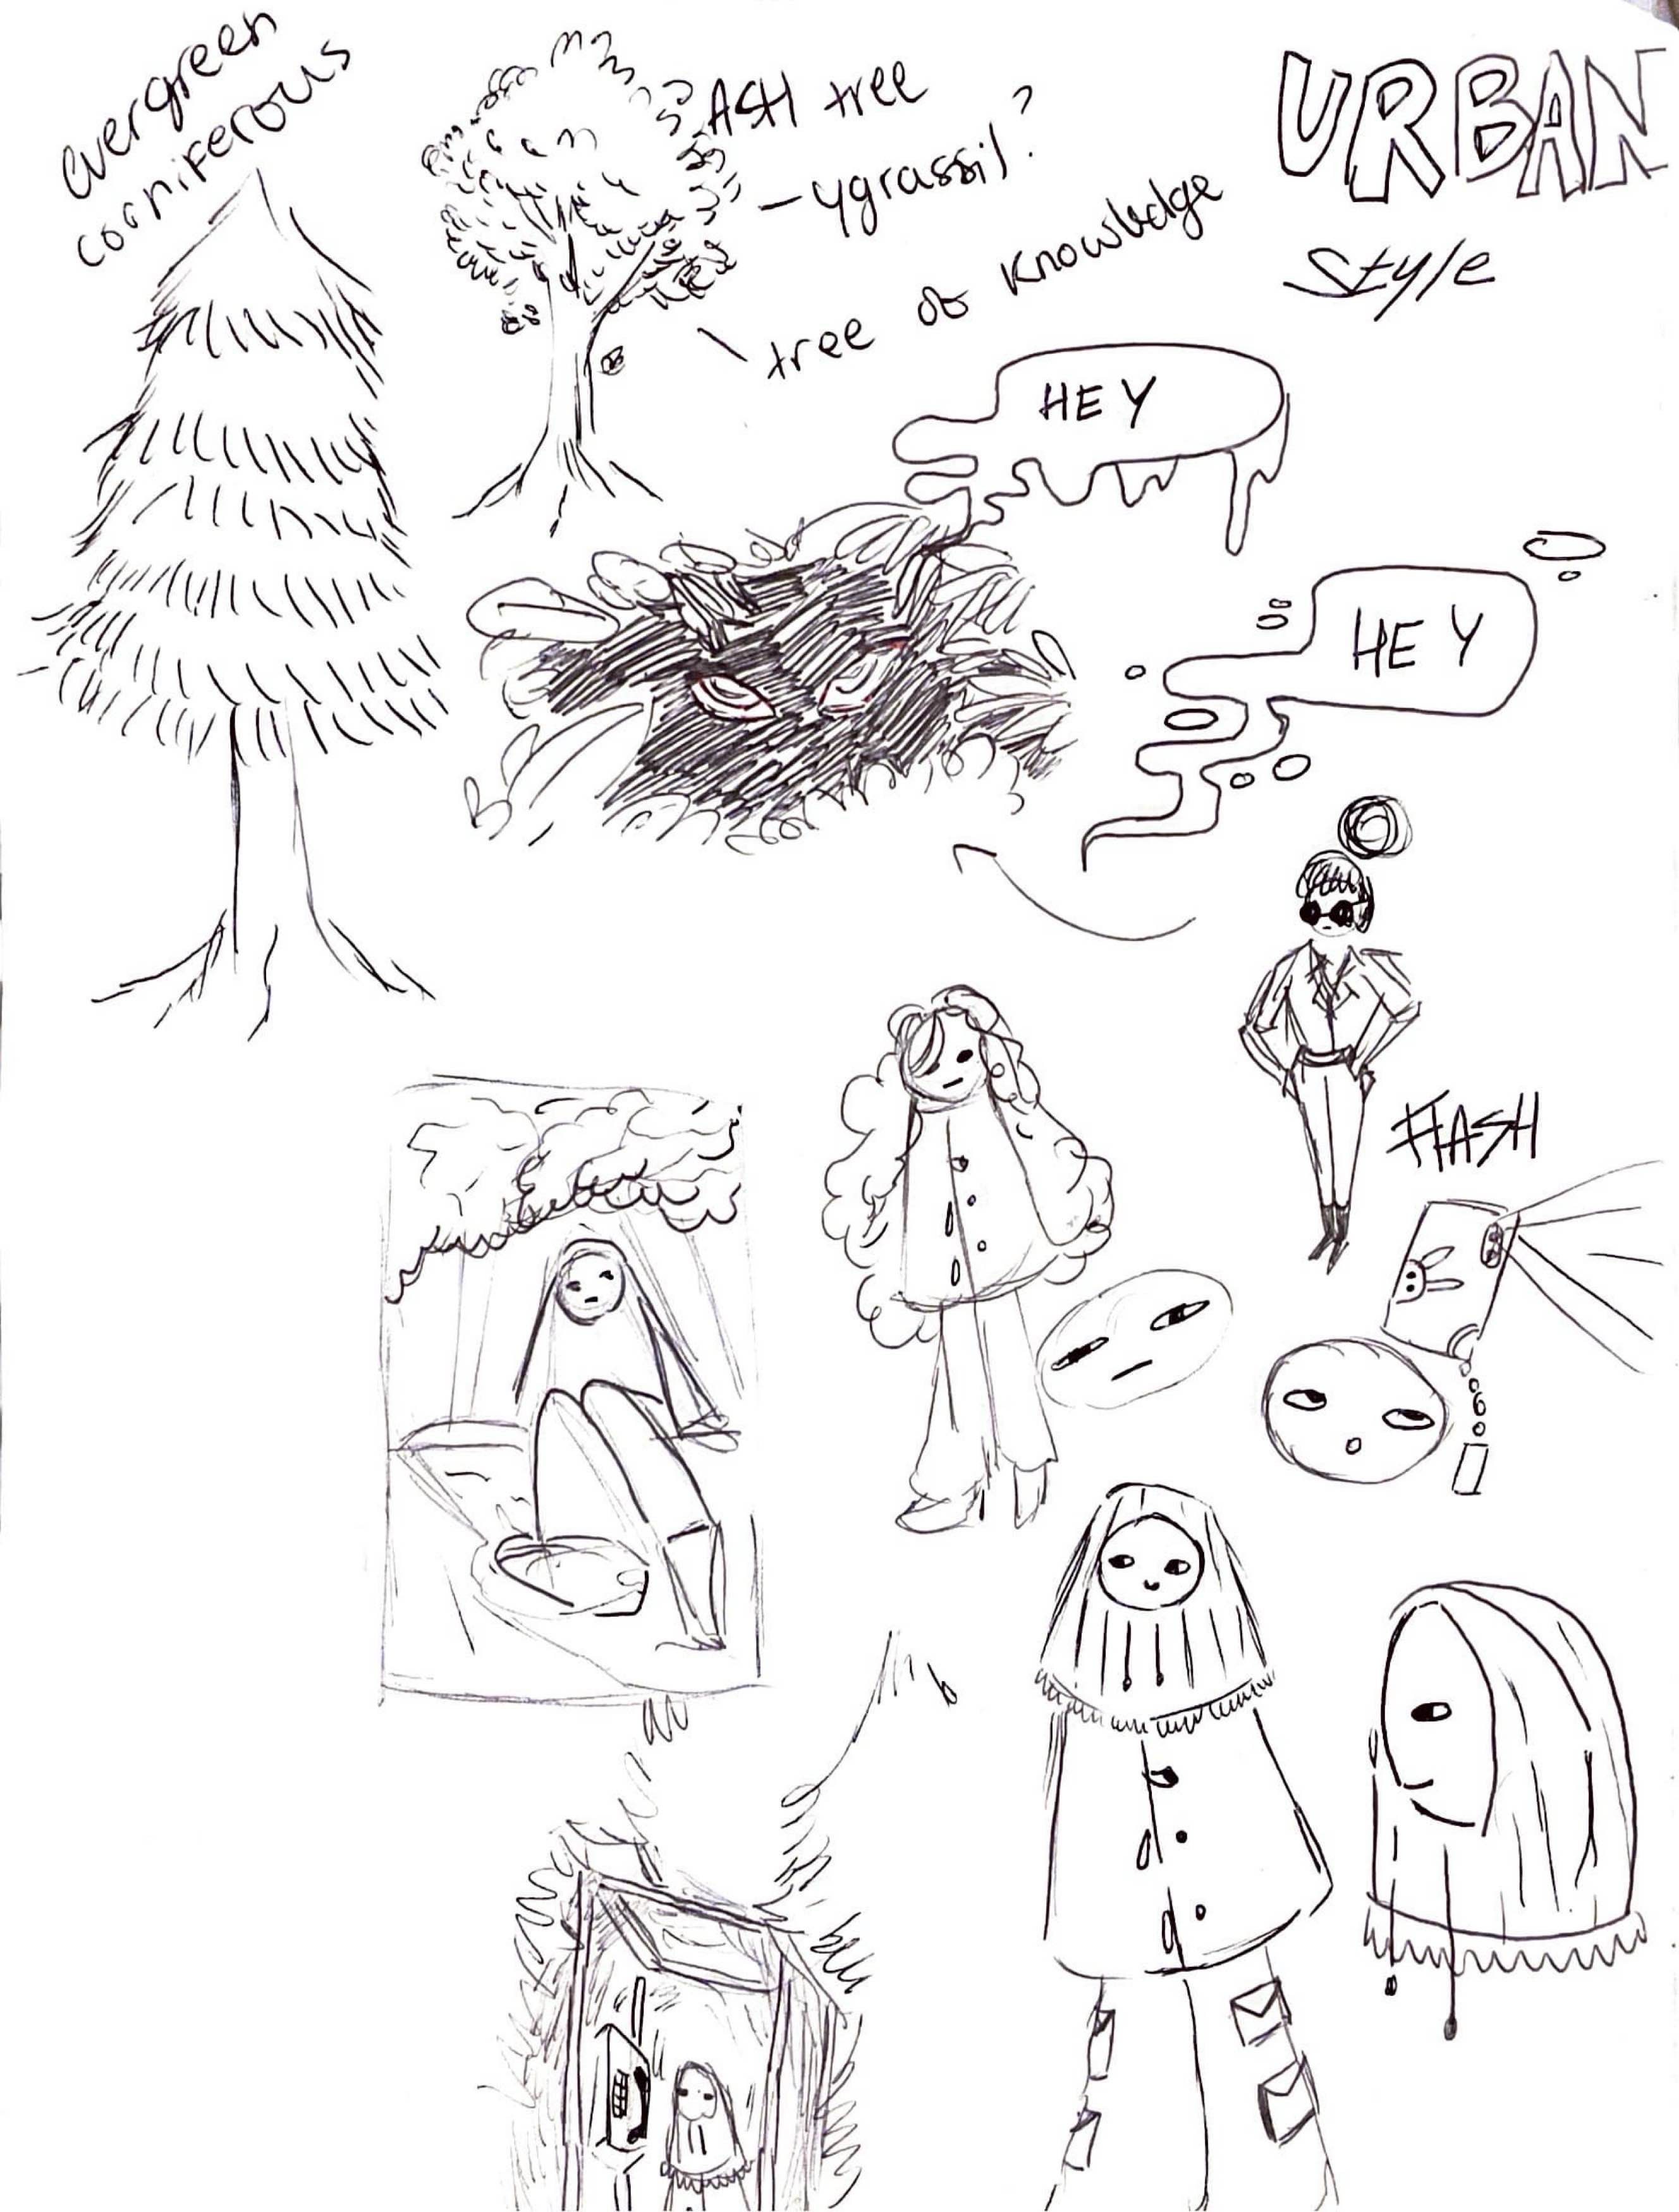 evergreen
coeniferous
ASH tree
- ygrassil?
\ tree of knowledge
URBAN
style
HEY
HEY
FLASH